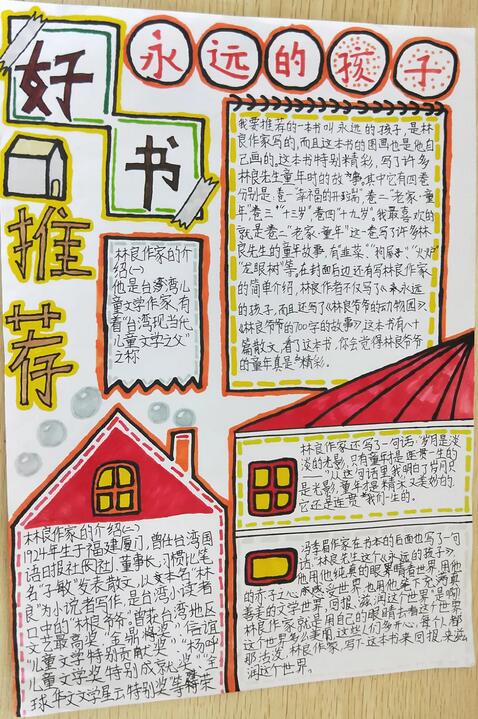 好书推荐
永远的孩子
我要推荐的一本书叫永远的孩子,是林
良作家写的,而且这本书的图画也是他自
己画的,这本书特别精彩,写了许多
林良先生童年时的故事。其中它有四卷
分别是:卷一"幸福的开端,卷二"老家·童
年"卷三"十三岁"卷四"十九岁"。我最喜欢的
就是卷二"老家·童年"这一卷写了许多林
良先生的童年故事,有"韭菜""狗尾子""火炉"
"龙眼树"等,在封面后边还有林良作家
的简单介绍,林良作者不仅写了《永远
的孩子,而且还写了《林良爷爷的动物园》、
《林良爷爷的700字的故事》,这本书有八十
篇散文,看了这本书,你会觉得林良爷爷
的童年真是精彩。
林良作家的介
绍(一)
他是台湾湾儿
童文学作家,有
着"台湾现当代
儿童文学之父"
之称
林良作家还写了一句话:岁月是淡
淡的光影,只有童年是连贯一生的
"以这句话里我明白了岁月只
是光影,童年才是精木又美好的,
它还是连贯我们一生的。
林良作家的介绍(二)
1924年生于福建厦门,曾任台湾国
语日报社社长,董事长,习惯以笔
名"子敏"发表散文,以本名"林
良"为小说者写作,是台湾小读者
口中的"林良爷爷",曾获台湾地区
文艺最高奖,"金鼎
儿童文学特别贡献奖"、"杨呼
儿童文学奖特别成就奖""全
球华文文学星云特别奖"等特荣
冯季眉作家在书本的后面也写了一句
话"林良先生这个《永远的孩子》,
他用他纯真的眼界睛看世界,用他
的赤子之心感受世界,也用他笔下充满真
善美的文学世界,回报,滋润这个世界"是啊!
林良作家就是用自己的眼睛去看这个世界
这个世界多么美丽,这些人们多开心,每个人都
那活泼,林良作家,写下这本书来回报,来滋
润这个世界。